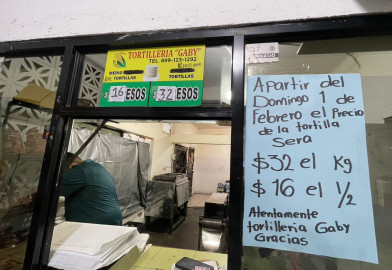 TORTILLERIA "GABY"
TEL. 899-123-1292
MEDIO
TORTILLAS
TORTILLAS
$16 ESOS
$32 ESOS
Apartir del
Domingo 1 de
Febrero el Precio
de la tortilla
Sera
$32 el Kg
$16 el 1/2
Atentamente
tortilleria Gaby
Gracias